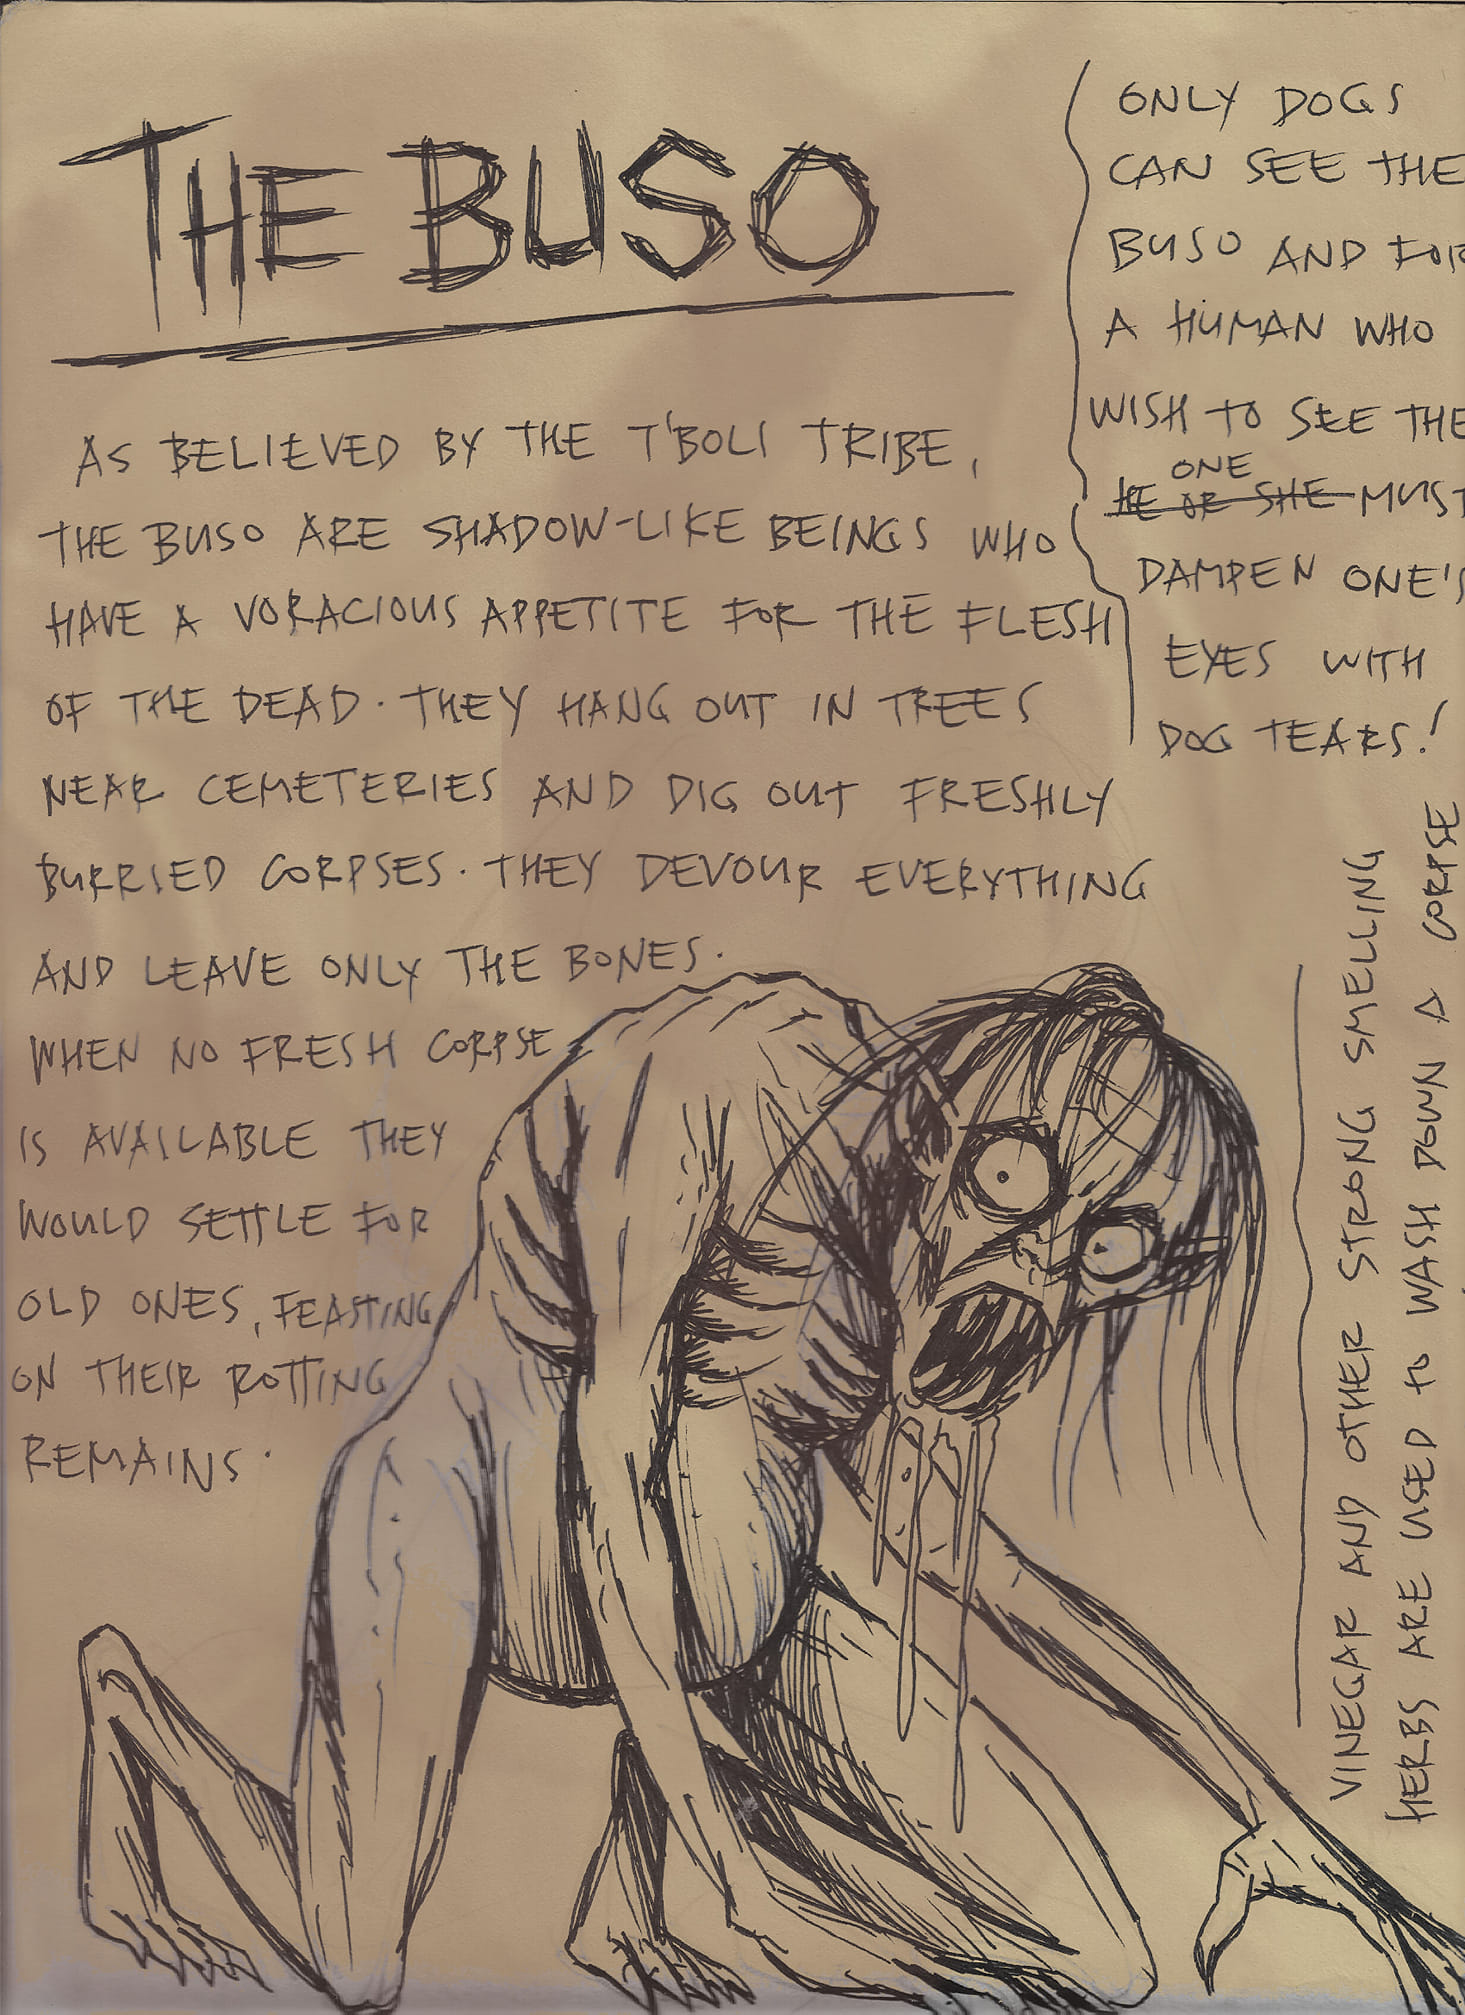 THE BUSO
AS BELIEVED BY THE T'BOLI TRIBE,
THE BUSO ARE SHADOW-LIKE BEINGS WHO
HAVE A VORACIOUS APPETITE FOR THE FLESH
OF THE DEAD. THEY HANG OUT IN TREES
NEAR CEMETERIES AND DIG OUT FRESHLY
BURRIED CORPSES. THEY DEVOUR EVERYTHING
AND LEAVE ONLY THE BONES.
WHEN NO FRESH CORPSE
IS AVAILABLE THEY
WOULD SETTLE FOR
OLD ONES, FEASTING
ON THEIR ROTTING
REMAINS.
ONLY DOGS
CAN SEE THE
BUSO AND FOR
A HUMAN WHO
WISH TO SEE THE
ONE
HE OR SHE MUST
DAMPEN ONE'S
EYES WITH
DOG TEARS!
VINEGAR AND OTHER STRONG SMELLING
HERBS ARE USED TO WASH DOWN A CORPSE